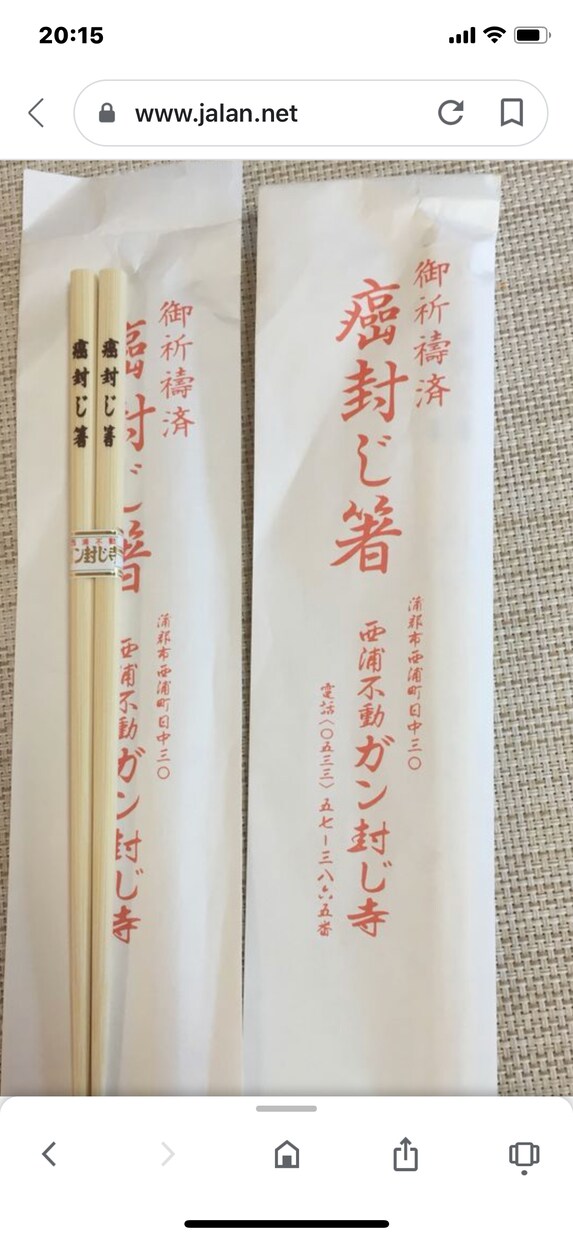 20:15
www.jalan.net
御祈禱済
癌封じ箸
蒲郡市西浦町日中三〇
西浦不動ガン封じ寺
癌封じ箸
癌封じ箸
西浦不動
ン封じ寺
御祈禱済
癌封じ箸
蒲郡市西浦町日中三〇
西浦不動ガン封じ寺
電話(〇五三三)五七ー三八六五番